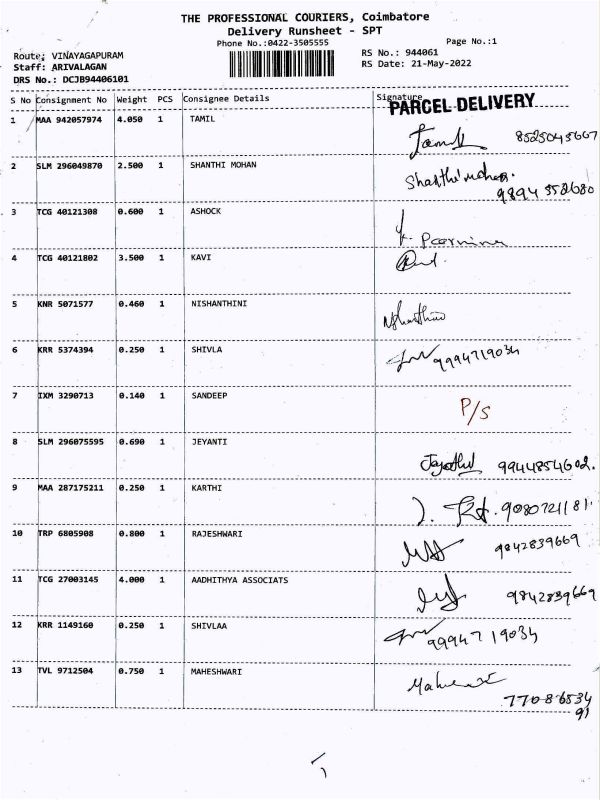 THE PROFESSIONAL COURIERS, Coimbatore
Delivery Runsheet - SPT
Phone No.:0422-3505555 Page No.:1
Route: VINAYAGAPURAM RS No.: 944061
Staff: ARIVALAGAN RS Date: 21-May-2022
DRS No.: DCJB94406101
S No Consignment No Weight PCS Consignee Details Signature
PARCEL DELIVERY
1 MAA 942057974 4.050 1 TAMIL
8525045667
2 SLM 296049870 2.500 1 SHANTHI MOHAN Shanthi mohan.
9894 352680
3 TCG 40121308 0.600 1 ASHOCK
4 TCG 40121802 3.500 1 KAVI
5 KNR 5071577 0.460 1 NISHANTHINI
6 KRR 5374394 0.250 1 SHIVLA 9994719034
7 IXM 3290713 0.140 1 SANDEEP P/S
8 SLM 296075595 0.690 1 JEYANTI 9944854602.
9 MAA 287175211 0.250 1 KARTHI 9080721181.
10 TRP 6805908 0.800 1 RAJESHWARI 9842839669
11 TCG 27003145 4.000 1 AADHITHYA ASSOCIATS 9842839669
12 KRR 1149160 0.250 1 SHIVLAA 9994719034
13 TVL 9712504 0.750 1 MAHESHWARI
77086534
91